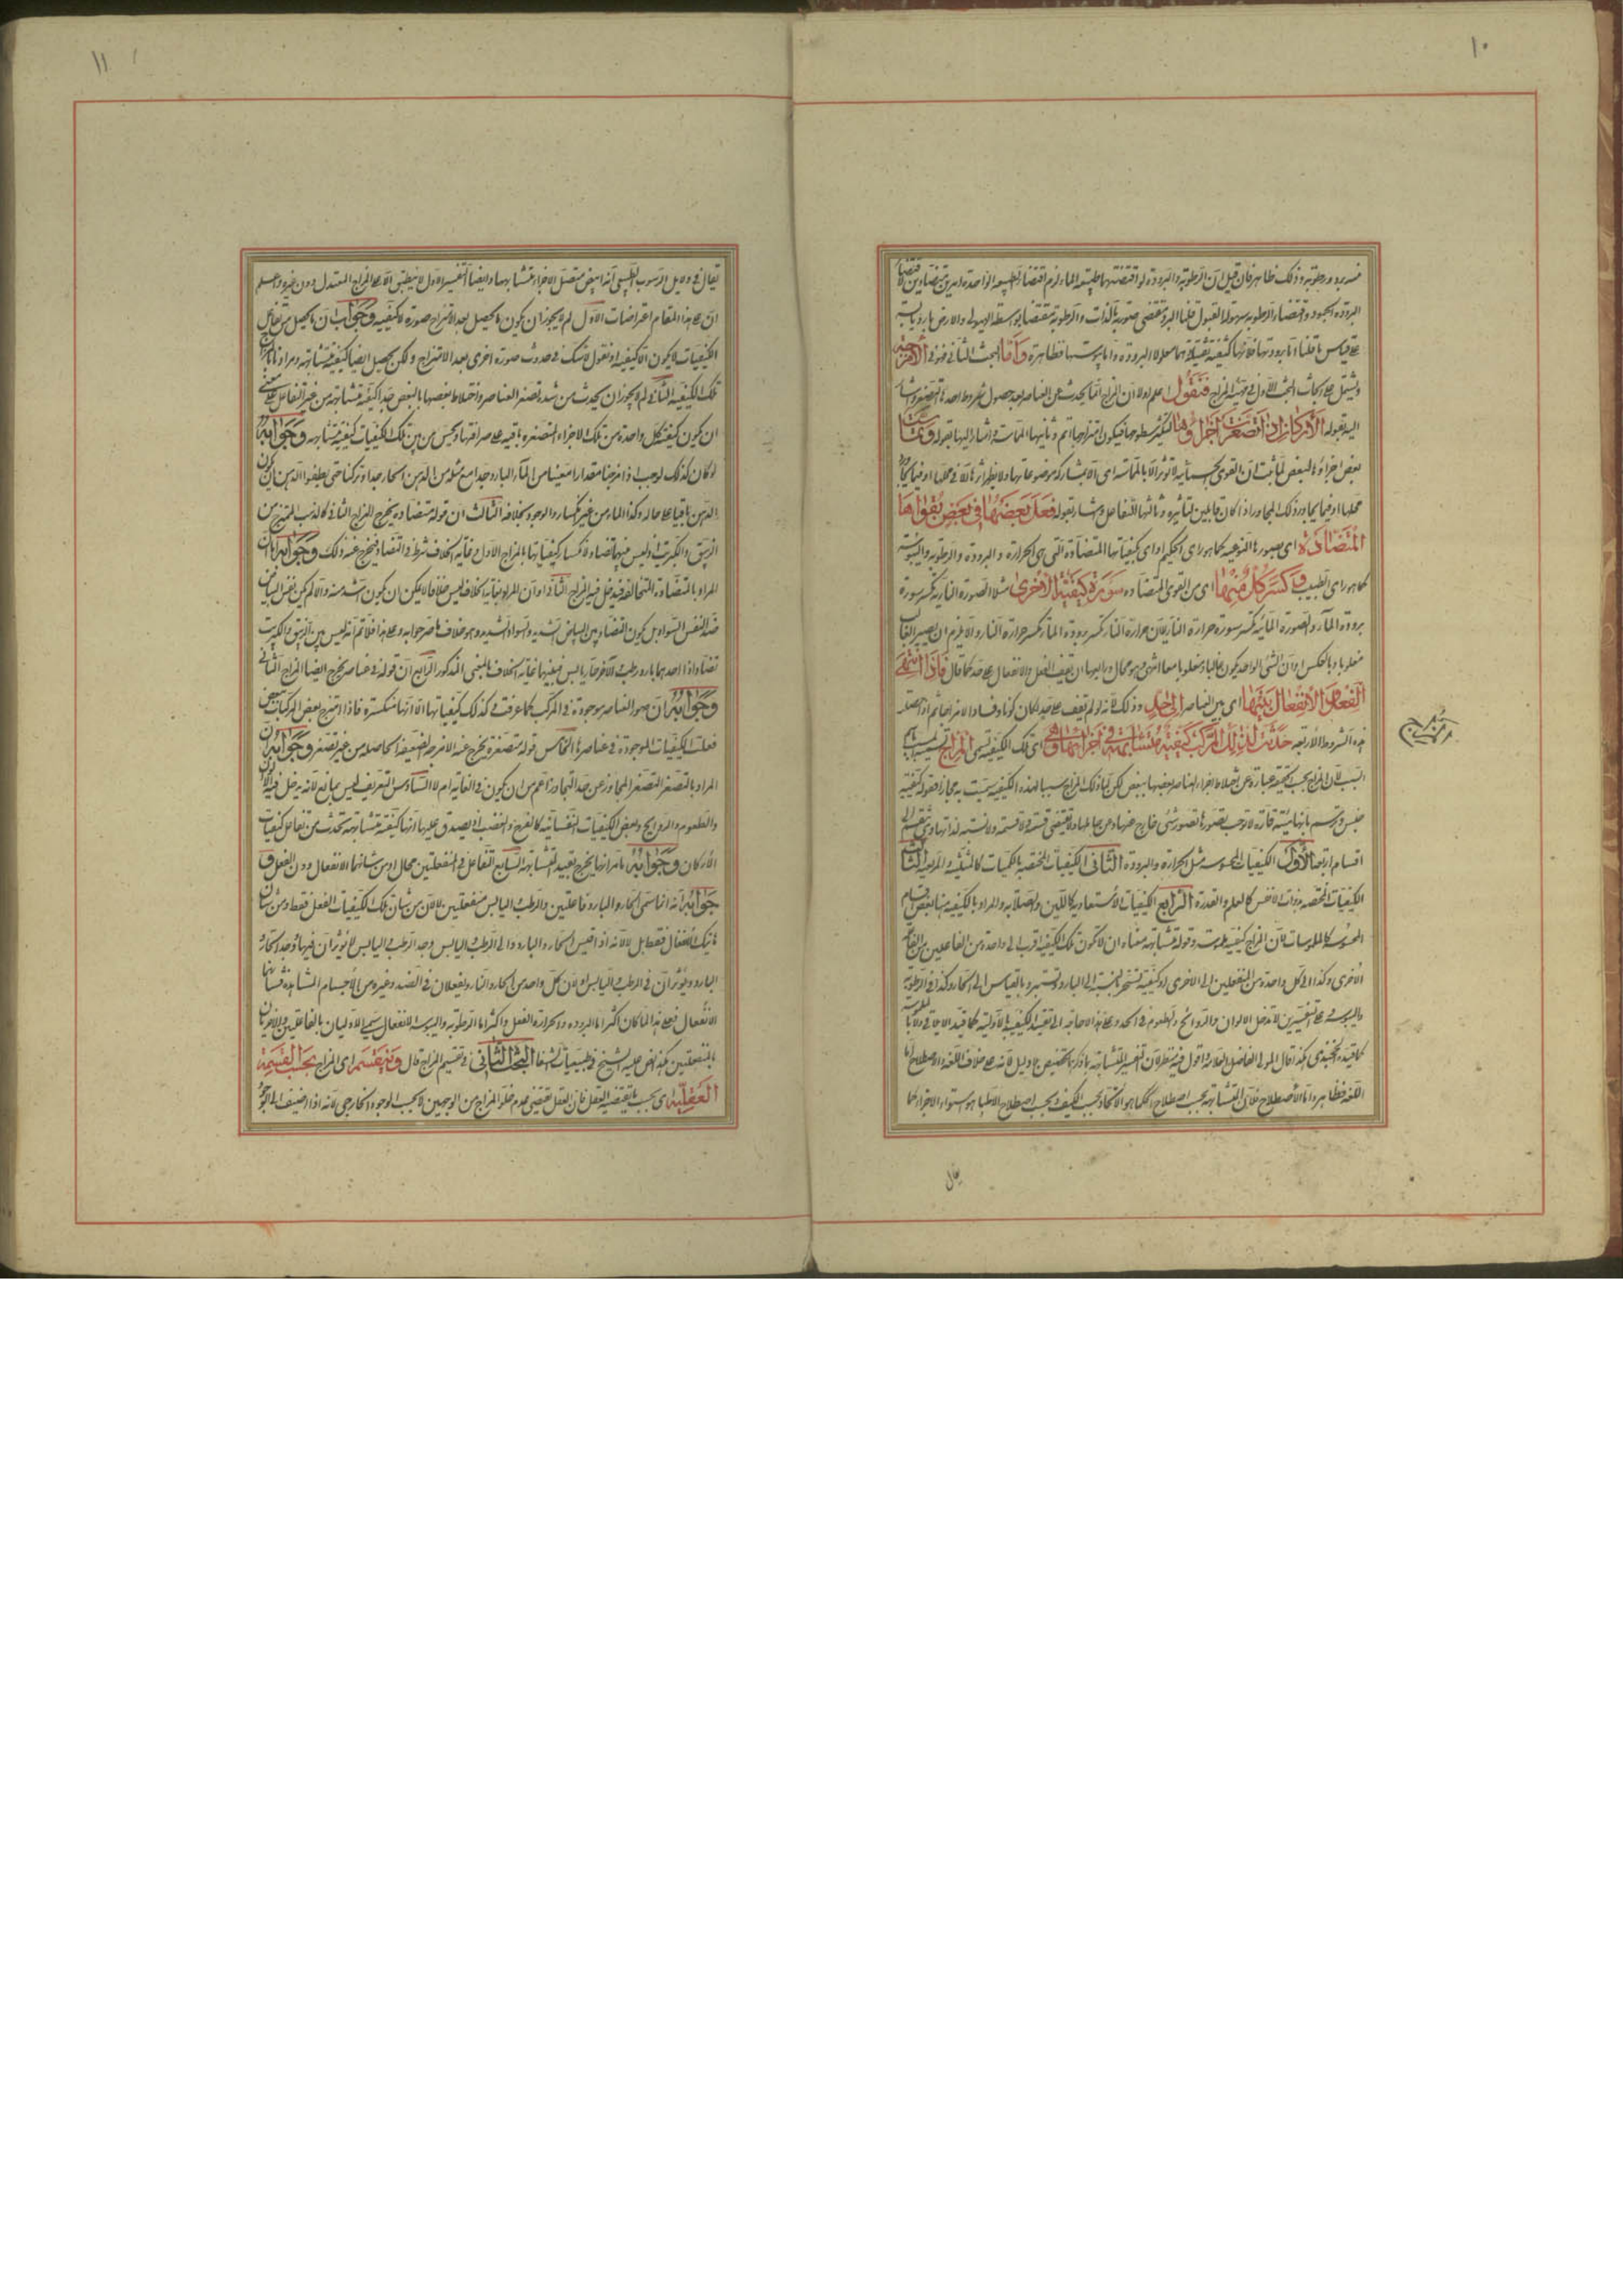 ١٠
فان قيل ان الرطوبة والبرودة
البرودة الجمود واقتضاء الرطوبة سهولة القبول قلنا البرودة تقتضى صورته بالذات والرطوبة مقتضاها بواسطة الهيولى والارض باردة يابسة
على قياس ما قلنا اما برودتها فلانها كثيفة ثقيلة وهما معلولا البرودة واما يبوستها فظاهرة وَاَمّا البحث الثانى فهو فى الامزجة
ويشتمل على ابحاث البحث الاول فى مهية المزاج فنقول اعلم اولا ان المزاج انما يحدث عن العناصر بعد حصول شروط احدها التصغر واشار
اليه بقوله الاركان اذا تصغرت اجزاؤها لتكثر سطوحها فيكون امتزاجها اتم وثانيها التماس واشار اليها بقوله وتماست
بعض اجزاؤها لبعض لما ثبت ان القوى الجسمانية لا تؤثر الا بالمماسة
محلها او فيما يجاوره وذلك المجاور اذا كان قابلين لتاثيره وثالثها التفاعل واشار بقوله فعل بعضها فى بعض بقواها
المتضادة اى بصورها النوعية كما هو راى الحكيم او اى كيفياتها المتضادة التى هى الحرارة والبرودة والرطوبة واليبوسة
كما هو راى الطبيب وكسر كل منها اى من القوى المتضادة سورة كيفية الاخرى مثلا الصورة النارية تكسر سورة
برودة الماء والصورة المائية تكسر سورة حرارة النار لان حرارة النار تكسر برودة الماء وبرودة الماء تكسر حرارة النار والا يلزم ان يصير الغالب
مغلوبا وبالعكس او ان الشئ الواحد يكون غالبا ومغلوبا معا وهو محال ورابعها ان يقف الفعل والانفعال على حد كما قال فاذا انتهى
الفعل والانفعال بينها اى بين العناصر الى حد وذلك لانه لو لم يقف على حد لكان كونا وفسادا لا مزاجا ثم اذا حصلت
هذه الشروط الاربعة حدث لذلك المركب كيفية متشابهة فى اجزائها وهى اى تلك الكيفية تسمى المزاج تسمية للمسبب باسم
السبب لان المزاج بحسب الحقيقة عبارة عن اختلاط اجزاء العناصر بعضها ببعض لكن لما كان ذلك المزاج سببا لهذه الكيفية سميت به مجازا فقوله كيفية
جنس وترسم بانها هيئة قارة لا توجب تصورها تصور شئ خارج عنها وعن حاملها ولا تقتضى قسمة ولا نسبة لذاتها وهى تنقسم الى
اقسام اربعة الاول الكيفيات المحسوسة مثل الحرارة والبرودة الثانى الكيفيات المختصة بالكميات كالتثليث والتربيع الثالث
الكيفيات المختصة بذوات الانفس كالعلم والقدرة الرابع الكيفيات الاستعدادية كاللين والصلابة والمراد بالكيفية هنا بعض اقسام
المحسوسة كالملموسات لان المزاج كيفية ملموسة وقوله متشابهة معناه ان لا تكون تلك الكيفية اقرب الى واحدة من الفاعلين من الفاعلة
الاخرى وكذا الى كل واحدة من المنفعلين الى الاخرى او كيفية تستحر بالنسبة الى البارد وتستبرد بالقياس الى الحار وكذا فى الرطوبة
واليبوسة فعلى التفسيرين لا تدخل الالوان والروائح والطعوم فى الحد وعلى هذا لا حاجة الى تقييد الكيفية بالاولية كما قيده الايلاقى ولا بالملموسة
كما قيده الخجندى هكذا قال المولى الفاضل العلامة اقول فيه نظر لان تفسير المتشابهة بما ذكر تخصيص بلا دليل لانه على خلاف اللغة والاصطلاح اما
اللغة فظاهر واما الاصطلاح فلان المتشابهة بحسب اصطلاح الحكما هو الاتحاد بحسب الكيف وبحسب اصطلاح الاطبا هو استواء الاجزاء كما
يقال
١١
يقال فى دلايل الرسوب الطبيعى انه ابيض متصل الاجزاء متشابهها وايضا التفسير الاول لا ينطبق الا على المزاج المعتدل دون غيره واعلم
ان على هذا المقام اعتراضات الاول لم لا يجوز ان يكون ما يحصل بعد الامتزاج صورة لا كيفية وجوابه ان ما يحصل من تفاعل
الكيفيات لا يكون الا كيفية او نقول لا شك فى حدوث صورة اخرى بعد الامتزاج ولكن يحصل ايضا كيفية متشابهة ومرادنا بالمزاج
تلك الكيفية الثانى لم لا يجوز ان يحدث من شدة تصغر العناصر واختلاط بعضها بالبعض جدا كيفية متشابهة من غير التفاعل على معنى
ان يكون كيفية كل واحدة من تلك الاجزاء المتصغرة باقية على صرافتها ويحس من بين تلك الكيفيات كيفية متشابهة وجوابه
لو كان كذلك لوجب اذا مزجنا مقدارا معينا من الماء البارد جدا مع مثله من الدهن الحار جدا وتركنا حتى يطفوا الدهن ان يكون
الدهن باقيا على حاله وكذا الماء من غير انكسار والوجود بخلافه الثالث ان قوله متضادة يخرج المزاج الثانى كالذهب الممتزج من
الزيبق والكبريت اذ ليس فيهما تضاد لانكسار كيفياتها بالمزاج الاول وغاية الخلاف شرط فى التضاد فيخرج عنه ذلك وجوابه بان
المراد بالمتضادة المتخالفة فيدخل فيه المزاج الثانى او ان المراد بغاية الخلاف ليس خلافا لا يمكن ان يكون اشد منه والا لم يكن نفس البياض
ضد النفس السواد بل يكون التضاد بين البياض الشديد والسواد الشديد وهو خلاف ما صرحوا به وعلى هذا فلا نم انه ليس بين الزيبق والكبريت
تضاد اذ احدهما بارد رطب والآخر حار يابس فبينهما غاية الخلاف بالمعنى المذكور الرابع ان قوله فى عناصر يخرج ايضا المزاج الثانى
وجوابه ان صور العناصر موجودة فى المركب كما عرفت وكذلك كيفياتها الا انها منكسرة فاذا امتزج بعض المركبات ببعض
فعلت الكيفيات الموجودة فى عناصرها الخامس قوله متصغرة يخرج عنه الامزجة الضعيفة الحاصلة من غير تصغر وجوابه ان
المراد بالتصغر التصغر المجاوز عن حد التجاور اعم من ان يكون فى الغاية ام لا السادس التعريف ليس بمانع لانه يدخل فيه الالوان
والطعوم والروايح وبعض الكيفيات النفسانية كالفرح والغضب اذ يصدق عليها انها كيفية متشابهة تحدث من تفاعل كيفيات
الاركان وجوابه ما مر انها يخرج بقيد المتشابهة السابع التفاعل فى المنفعلتين محال اذ من شانهما الانفعال دون الفعل و
جوابه انه انما سمى الحار والبارد فاعلتين والرطب واليابس منفعلتين لا لان من شان تلك الكيفيات الفعل فقط ومن شان
هاتيك الانفعال فقط بل لانه اذا قيس الحار والبارد الى الرطب واليابس وجد الرطب واليابس لا يؤثران فيهما ووجد الحار
والبارد يؤثران فى الرطب واليابس او لان كل واحد من الحار والبارد يفعلان فى الضد وغيره من الاجسام المشاهدة
الانفعال فعلى هذا لما كان اكثر امر البرودة والحرارة الفعل واكثر امر الرطوبة واليبوسة الانفعال سمى الاوليان بالفاعلتين والاخريان
بالمنفعلتين هكذا نص عليه الشيخ فى طبيعيات الشفا البحث الثانى فى تقسيم المزاج قال وينقسم اى المزاج بحسب القسمة
العقلية اى بحسب ما يقتضيه العقل فان العقل يقتضى عدم خلو المزاج من الوجهين لا بحسب الوجود الخارجى لانه اذا اضيف الى الوجود